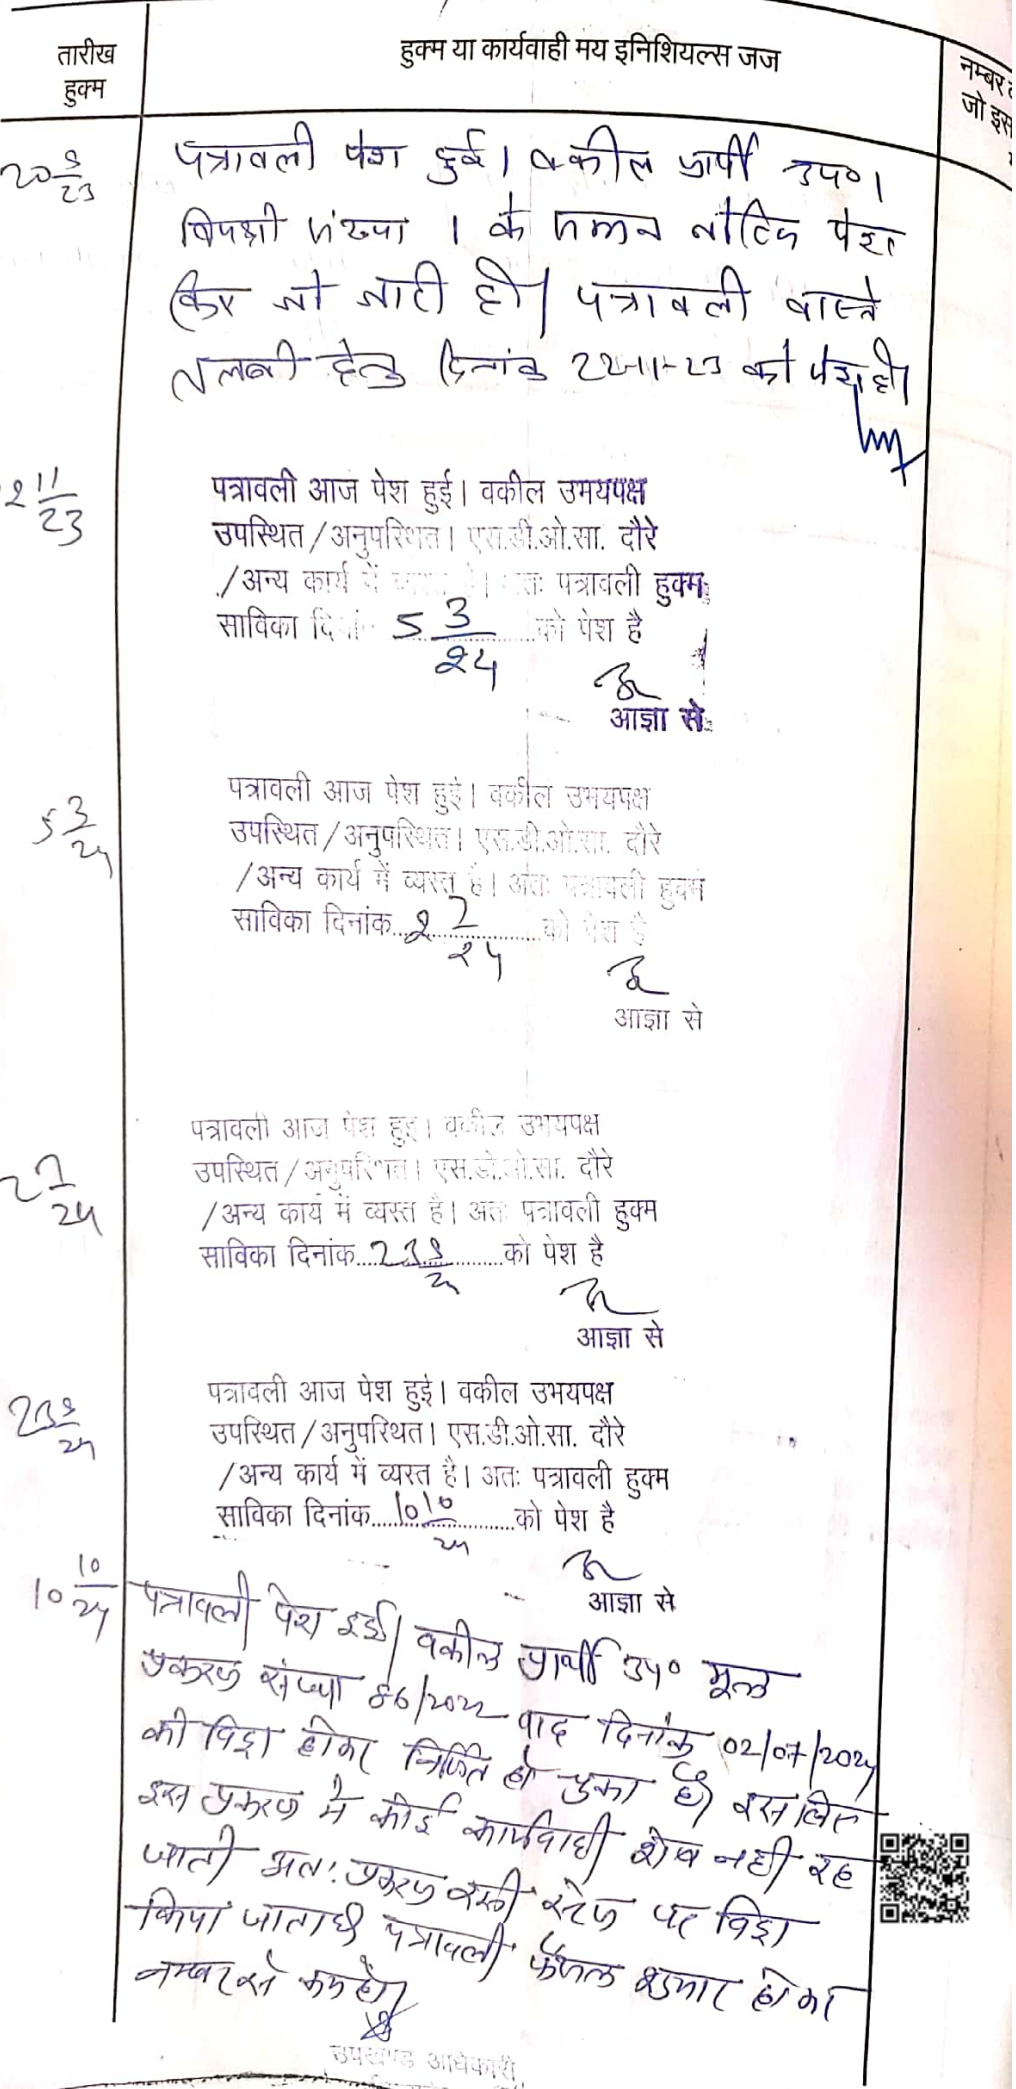 तारीख
हुक्म
हुक्म या कार्यवाही मय इनिशियल्स जज
नम्बर
जो इस
20 9/23
पत्रावली पेश हुई। वकील प्रार्थी उप०।
विपक्षी संख्या 1 के सम्मन नोटिस पेश
किए जो जारी हो। पत्रावली वास्ते
तलबी हेतु दिनांक 22-11-23 को पेश हो।
2 11/23
पत्रावली आज पेश हुई। वकील उभयपक्ष
उपस्थित/अनुपस्थित। एस.डी.ओ.सा. दौरे
/अन्य कार्य में व्यस्त है। अतः पत्रावली हुक्म
साविका दिनांक 5 3/24 को पेश है
आज्ञा से
5 3/24
पत्रावली आज पेश हुई। वकील उभयपक्ष
उपस्थित/अनुपस्थित। एस.डी.ओ.सा. दौरे
/अन्य कार्य में व्यस्त है। अतः पत्रावली हुक्म
साविका दिनांक...2 7/24...को पेश है
आज्ञा से
2 7/24
पत्रावली आज पेश हुई। वकील उभयपक्ष
उपस्थित/अनुपस्थित। एस.डी.ओ.सा. दौरे
/अन्य कार्य में व्यस्त है। अतः पत्रावली हुक्म
साविका दिनांक...23 9/24...को पेश है
आज्ञा से
23 9/24
पत्रावली आज पेश हुई। वकील उभयपक्ष
उपस्थित/अनुपस्थित। एस.डी.ओ.सा. दौरे
/अन्य कार्य में व्यस्त है। अतः पत्रावली हुक्म
साविका दिनांक...10 10/24...को पेश है
आज्ञा से
10 10/24
पत्रावली पेश हुई। वकील प्रार्थी उप० मूल
प्रकरण संख्या 86/2022 वाद दिनांक 02/07/2024
को विड्रा होकर निर्णित हो चुका है। इसलिए
इस प्रकरण में कोई कार्यवाही शेष नहीं रह
जाती अतः प्रकरण इसी स्टेज पर विड्रा
किया जाता है पत्रावली फैसल शुमार होकर
नम्बर से कम हो।
उपखण्ड अधिकारी